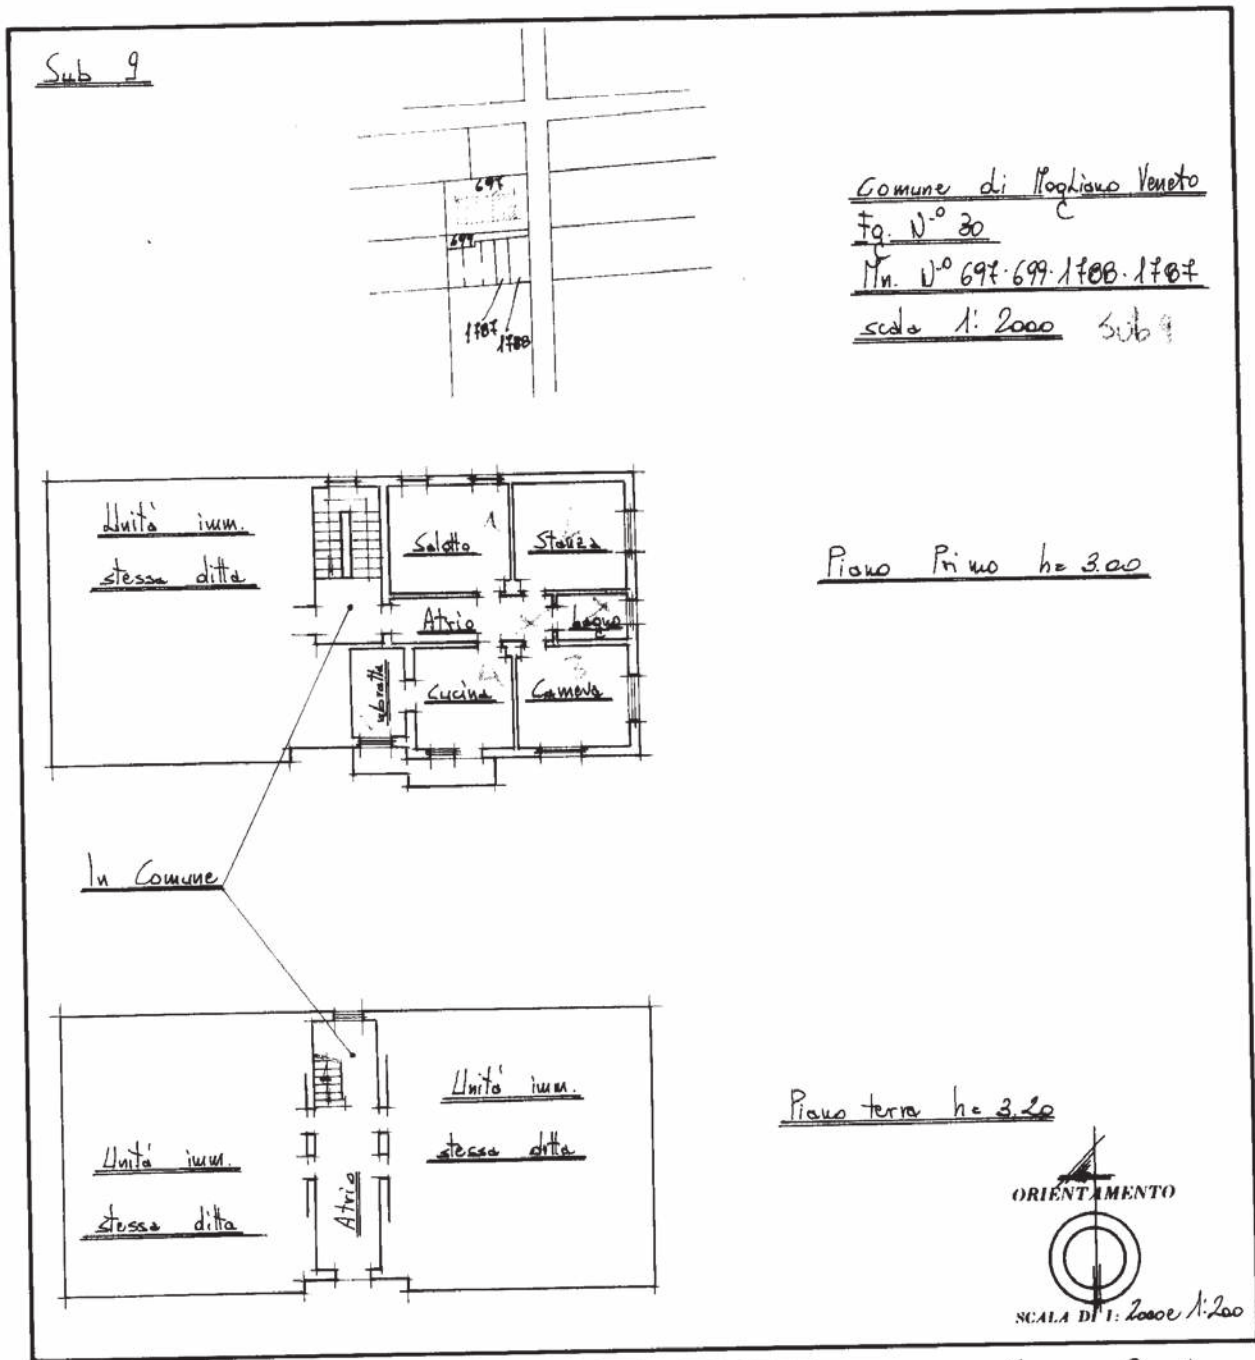 Sub 9
697
699
1787
1788
Comune di Mogliano Veneto
Fg. N.o 30
Mn. N.o 697-699-1788-1787
scala 1: 2000 Sub 9
Unità imm.
stessa ditta
Salotto
Stanza
Atrio
bagno
Cucina
Camera
Piano Primo h= 3.00
In Comune
Unità imm.
stessa ditta
Unità imm.
stessa ditta
Atrio
Piano terra h= 3.20
ORIENTAMENTO
SCALA DI 1: 2000 e 1:200